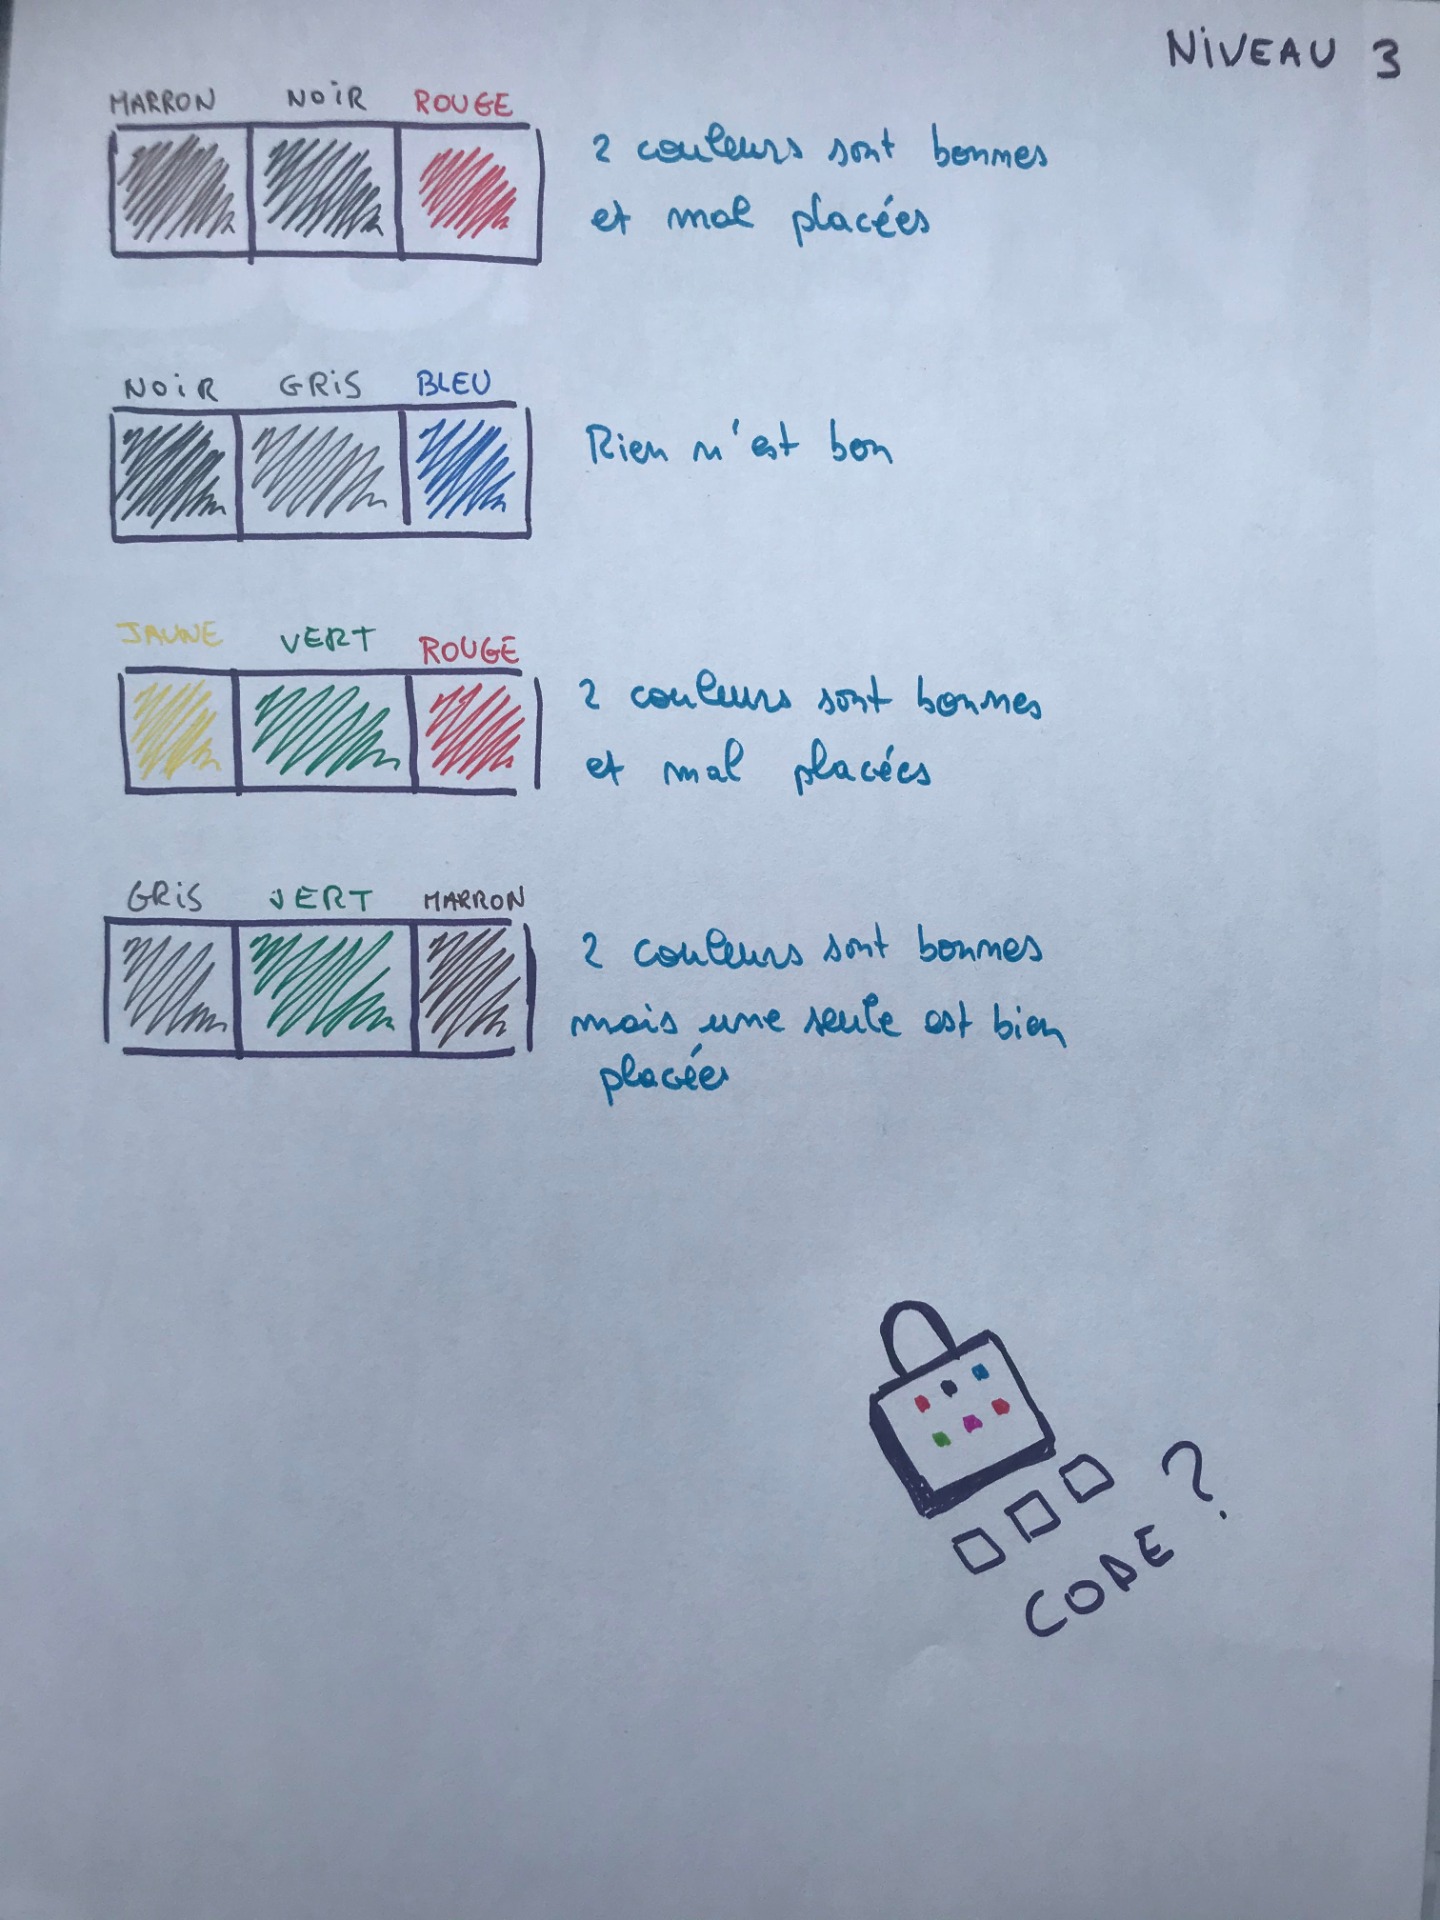 NIVEAU 3
MARRON NOIR ROUGE
2 couleurs sont bonnes
et mal placées
NOIR GRIS BLEU
Rien n'est bon
JAUNE VERT ROUGE
2 couleurs sont bonnes
et mal placées
GRIS VERT MARRON
2 couleurs sont bonnes
mais une seule est bien
placées
CODE ?